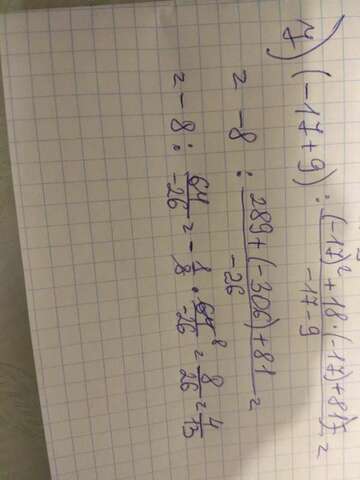 4) (-17+9) : ((-17)² + 18·(-17) + 81)/(-17-9) =
= -8 : (289+(-306)+81)/(-26) =
= -8 : 64/(-26) = -1/8 · 64⁸/(-26) = 8/26 = 4/13